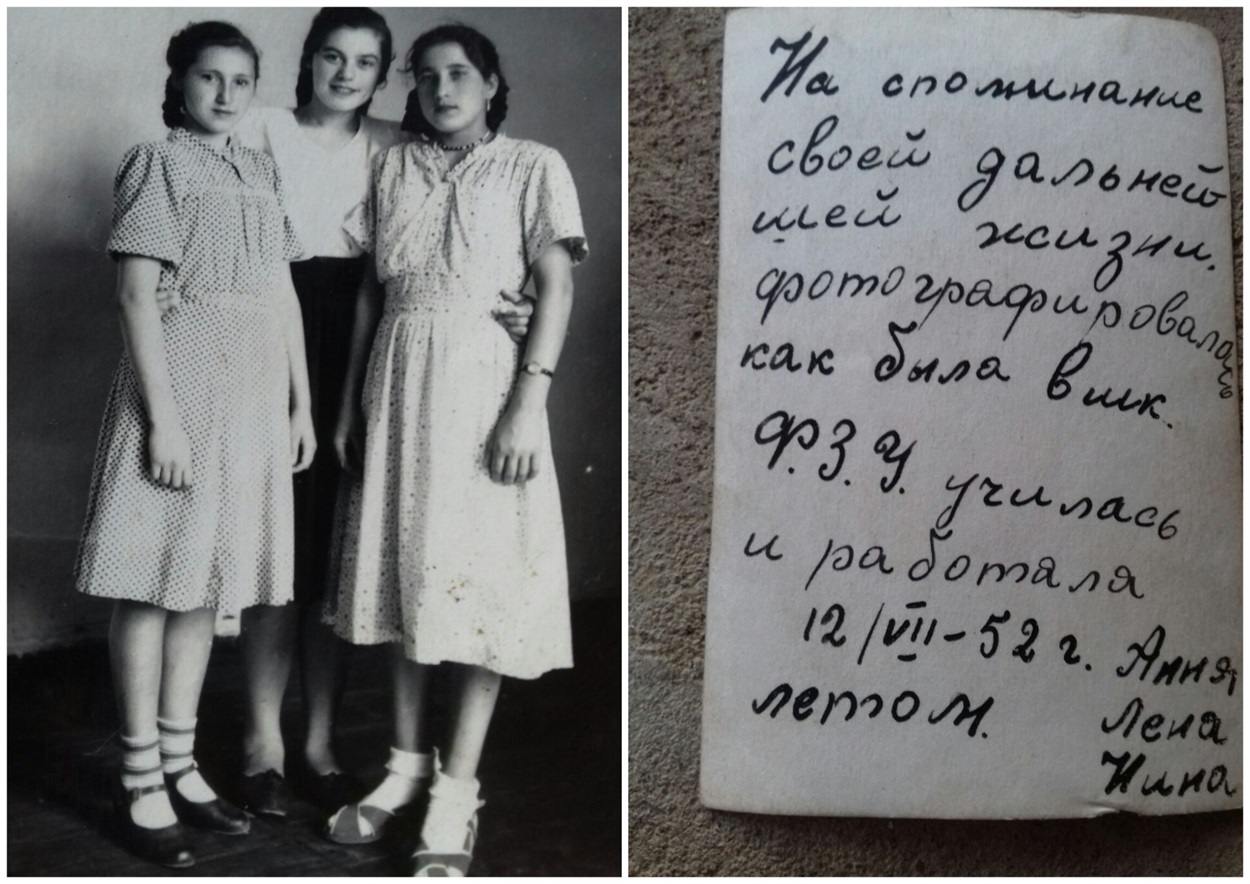 На споминание
своей дальней
шей жизни.
фотографировалась
как была в шк.
Ф.З.У. училась
и работала
12/VII-52 г. Анна,
летом. Лена
Нина